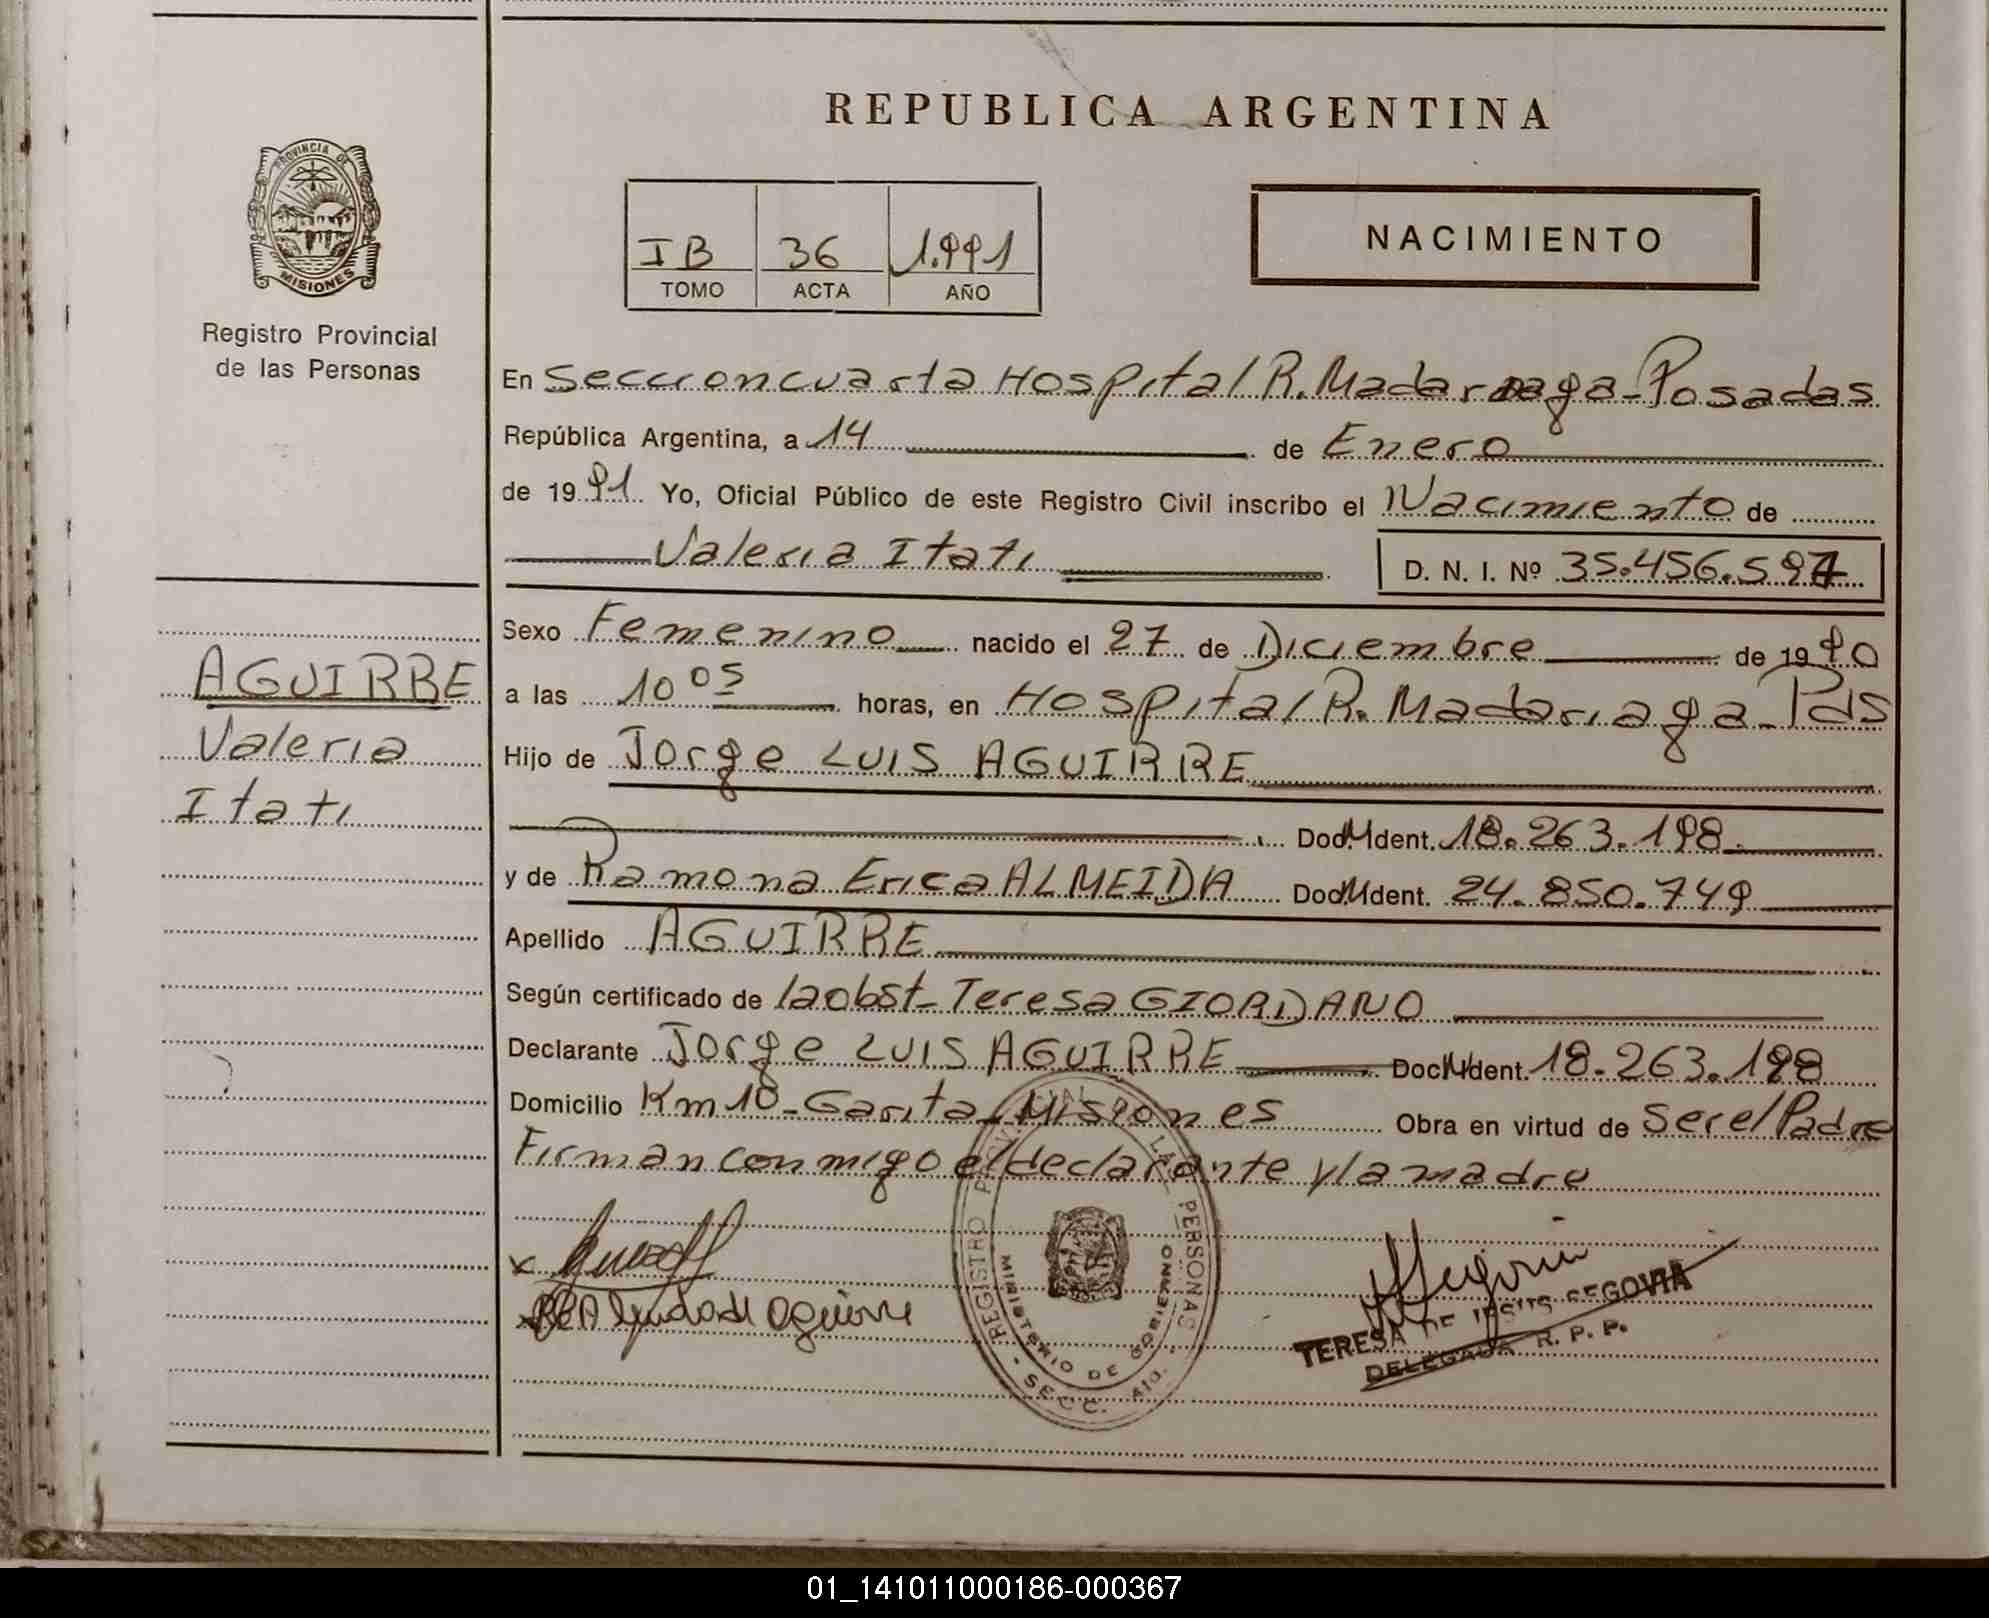 REPUBLICA ARGENTINA
PROVINCIA DE
MISIONES
Registro Provincial
de las Personas
IB 36 1.991
TOMO ACTA AÑO
NACIMIENTO
En Seccion cuarta Hospital R. Madariaga - Posadas
República Argentina, a 14 de Enero
de 1991 Yo, Oficial Público de este Registro Civil inscribo el Nacimiento de
Valeria Itati
D. N. I. Nº
AGUIRRE
Valeria
Itati
Sexo Femenino nacido el 27 de Diciembre de 1990
a las 10 05 horas, en Hospital R. Madariaga - Pds
Hijo de Jorge LUIS AGUIRRE
Doc. M Ident. 18.263.198.
y de Ramona Erica ALMEIDA Doc. M Ident. 24.850.749
Apellido AGUIRRE
Según certificado de la obst- Teresa GIORDANO
Declarante Jorge LUIS AGUIRRE Doc M Ident. 18.263.198
Domicilio Km 10 - Garita - Misiones Obra en virtud de Ser el Padre
Firman conmigo el declarante y la madre
REGISTRO PROVINCIAL DE LAS PERSONAS
MINISTERIO DE GOBIERNO
SECC. 4ta.
TERESA DE JESUS SEGOVIA
DELEGADA R. P. P.
01_141011000186-000367